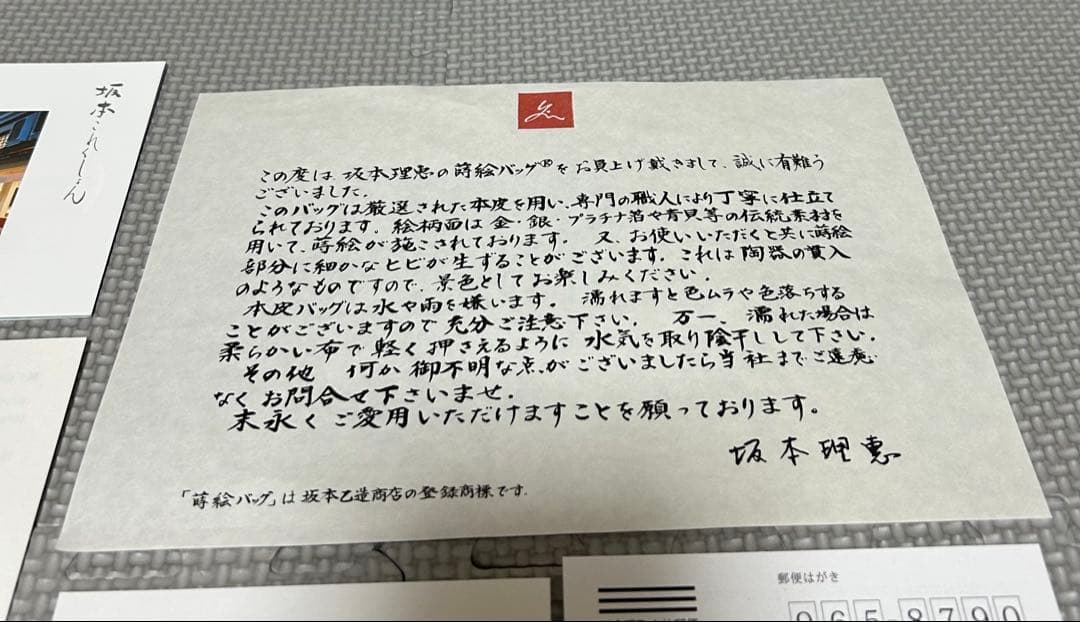 坂本これくしょん
この度は、坂本理恵の蒔絵バッグ®をお買上げ戴きまして、誠に有難う
ございました。
このバッグは厳選された本皮を用い、専門の職人により丁寧に仕立て
られております。絵柄面は金・銀・プラチナ箔や青貝等の伝統素材を
用いて、蒔絵が施こされております。 又、お使いいただくと共に蒔絵
部分に細かなヒビが生ずることがございます。これは陶器の貫入
のようなものですので、景色としてお楽しみください。
本皮バッグは水や雨を嫌います。 濡れますと色ムラや色落ちする
ことがございますので充分ご注意下さい。 万一、濡れた場合は
柔らかい布で軽く押さえるように水気を取り陰干しして下さい。
その他 何か御不明な点がございましたら当社までご遠慮
なくお問合せ下さいませ。
末永くご愛用いただけますことを願っております。
坂本理恵
「蒔絵バッグ」は坂本乙造商店の登録商標です。
郵便はがき
965-8790